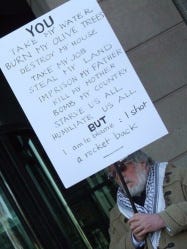 YOU
TAKE MY WATER
BURN MY OLIVE TREES
DESTROY MY HOUSE
TAKE MY JOB
STEAL MY LAND
IMPRISON MY FATHER
KILL MY MOTHER
BOMB MY COUNTRY
STARVE US ALL
HUMILIATE US ALL
BUT
I am to blame: I shot
a rocket back